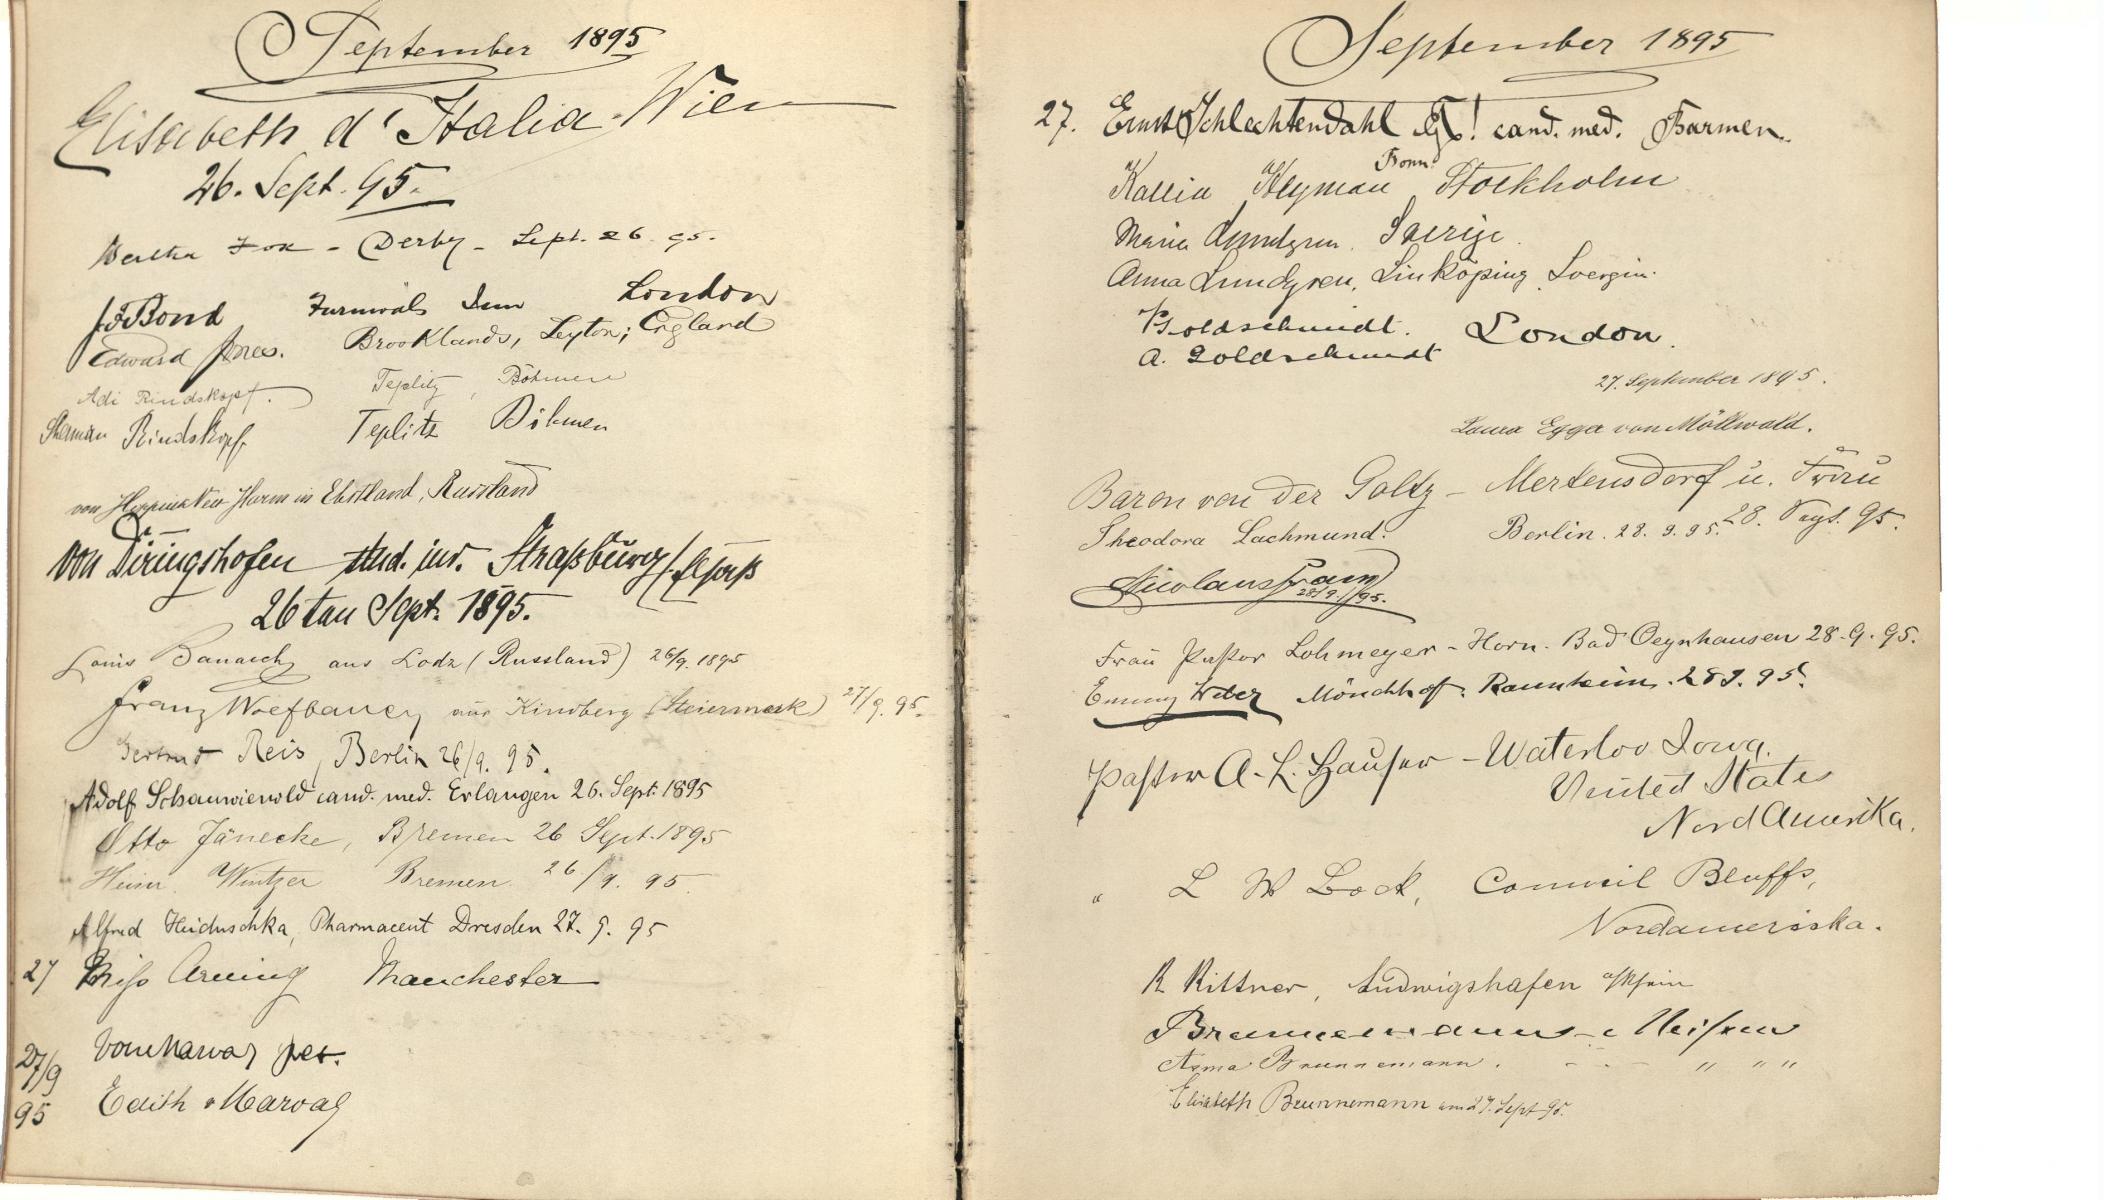 September 1895
Elisabeth d'Italia - Wien
26. Sept. 95.
Bertha Fox - Derby - Sept. 26. 95.
J. F. Bond Furnivals Inn London
Edward Jones. Brooklands, Leyton; England
Adi Rindskopf. Teplitz, Böhmen
Rindskopf Teplitz Böhmen
von Harm in Ehstland, Russland
von Düringshofen stud. jur. Straßburg / Elsaß
26ten Sept. 1895.
Louis Banasch aus Lodz (Russland) 26/9. 1895
Franz aus Kindberg (Steiermark) 27/9. 95.
Gertrud Reis, Berlin 26/9. 95.
Adolf cand. med. Erlangen 26. Sept. 1895
Otto Jänecke, Bremen 26 Sept. 1895
Heinr. Wintzer Bremen 26/9. 95.
Alfred Heiduschka, Pharmaceut Dresden 27. 9. 95
27 Miss Arning Manchester
27/9
95
Edith v Marvag
September 1895
27. Ernst Schlechtendahl cand. med. Barmen.
Bonn
Heyman Stockholm
Maria Lundgren. Sverige.
Anna Lundgren, Linköping,
Goldschmidt. London.
A. Goldschmidt
27. September 1895.
Laura Egger von Möllwald.
Baron von der Goltz - Mertensdorf u. Frau
28. Sept. 95.
Theodora Lachmund. Berlin. 28. 9. 95.
Nicolaus
28/9. 95.
Frau Pastor Lohmeyer - Horn. Bad Oeynhausen 28. 9. 95.
Emmy Weber Mönchhof. Raunheim. 28 9. 95.
Pastor A. L. Hauser - Waterloo Iowa.
United States
Nord Amerika.
" L W Bock, Council Bluffs,
Nordameriska.
R Rittner, Ludwigshafen a/Rhein
Brunnemann - Meissen
Anna Brunnemann. - - - " " "
Elisabeth Brunnemann am 27. Sept 95.